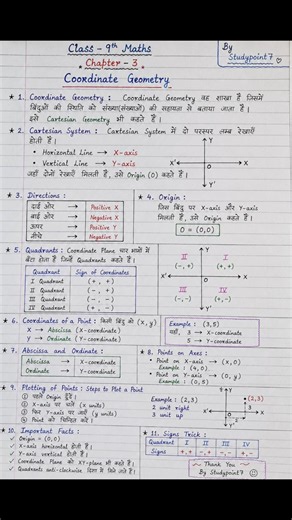 Class - 9th Maths
By
Studypoint7
Chapter - 3
Coordinate Geometry
★ 1. Coordinate Geometry : Coordinate Geometry वह शाखा है जिसमें
बिंदुओं की स्थिति को संख्या(संख्याओं) की सहायता से बताया जाता है।
इसे Cartesian Geometry भी कहते हैं।
★ 2. Cartesian System : Cartesian System में दो परस्पर लम्ब रेखाएँ
होती हैं।
• Horizontal Line → X-axis
• Vertical Line → Y-axis
जहाँ दोनों रेखाएँ मिलती हैं, उसे Origin (O) कहते हैं।
Y
X' O X
Y'
★ 3. Directions :
दाईं ओर → Positive X
बाईं ओर → Negative X
ऊपर → Positive Y
नीचे → Negative Y
★ 4. Origin :
जिस बिंदु पर X-axis और Y-axis
मिलती हैं, उसे Origin कहते हैं।
O = (0,0)
★ 5. Quadrants : Coordinate Plane चार भागों में
बँटा होता है जिन्हें Quadrants कहते हैं।
Quadrant Sign of Coordinates
I Quadrant (+, +)
II Quadrant (-, +)
III Quadrant (-, -)
IV Quadrant (+, -)
Y
II I
(-, +) (+, +)
X' O X
III IV
(-, -) (+, -)
Y'
★ 6. Coordinates of a Point : किसी बिंदु को (x, y)
X → Abscissa (X-coordinate)
Y → Ordinate (Y-coordinate)
Example : (3,5)
यहाँ, 3 → X-coordinate
5 → Y-coordinate
★ 7. Abscissa and Ordinate :
Abscissa → X-coordinate
Ordinate → Y-coordinate
★ 8. Points on Axes :
• Point on X-axis → (x,0)
Example : (4,0)
• Point on Y-axis → (0, y)
Example : (0,5)
★ 9. Plotting of Points : Steps to Plot a Point
① पहले Origin ढूँढें।
② X-axis पर चलें (x units)
③ फिर Y-axis पर जाएँ (y units)
④ Point को चिह्नित करें।
Example : (2,3)
2 unit right
3 unit up
Y
(2,3)
X' X
Y'
★ 10. Important Facts :
✓ Origin = (0,0)
✓ X-axis horizontal होती है।
✓ Y-axis vertical होती है।
✓ Coordinate Plane को XY-plane भी कहते हैं।
✓ Quadrants anti-clockwise दिशा में गिने जाते हैं।
★ 11. Signs Trick :
Quadrant I II III IV
Signs +,+ -,+ -,- +,-
~ Thank You ~
By Studypoint7